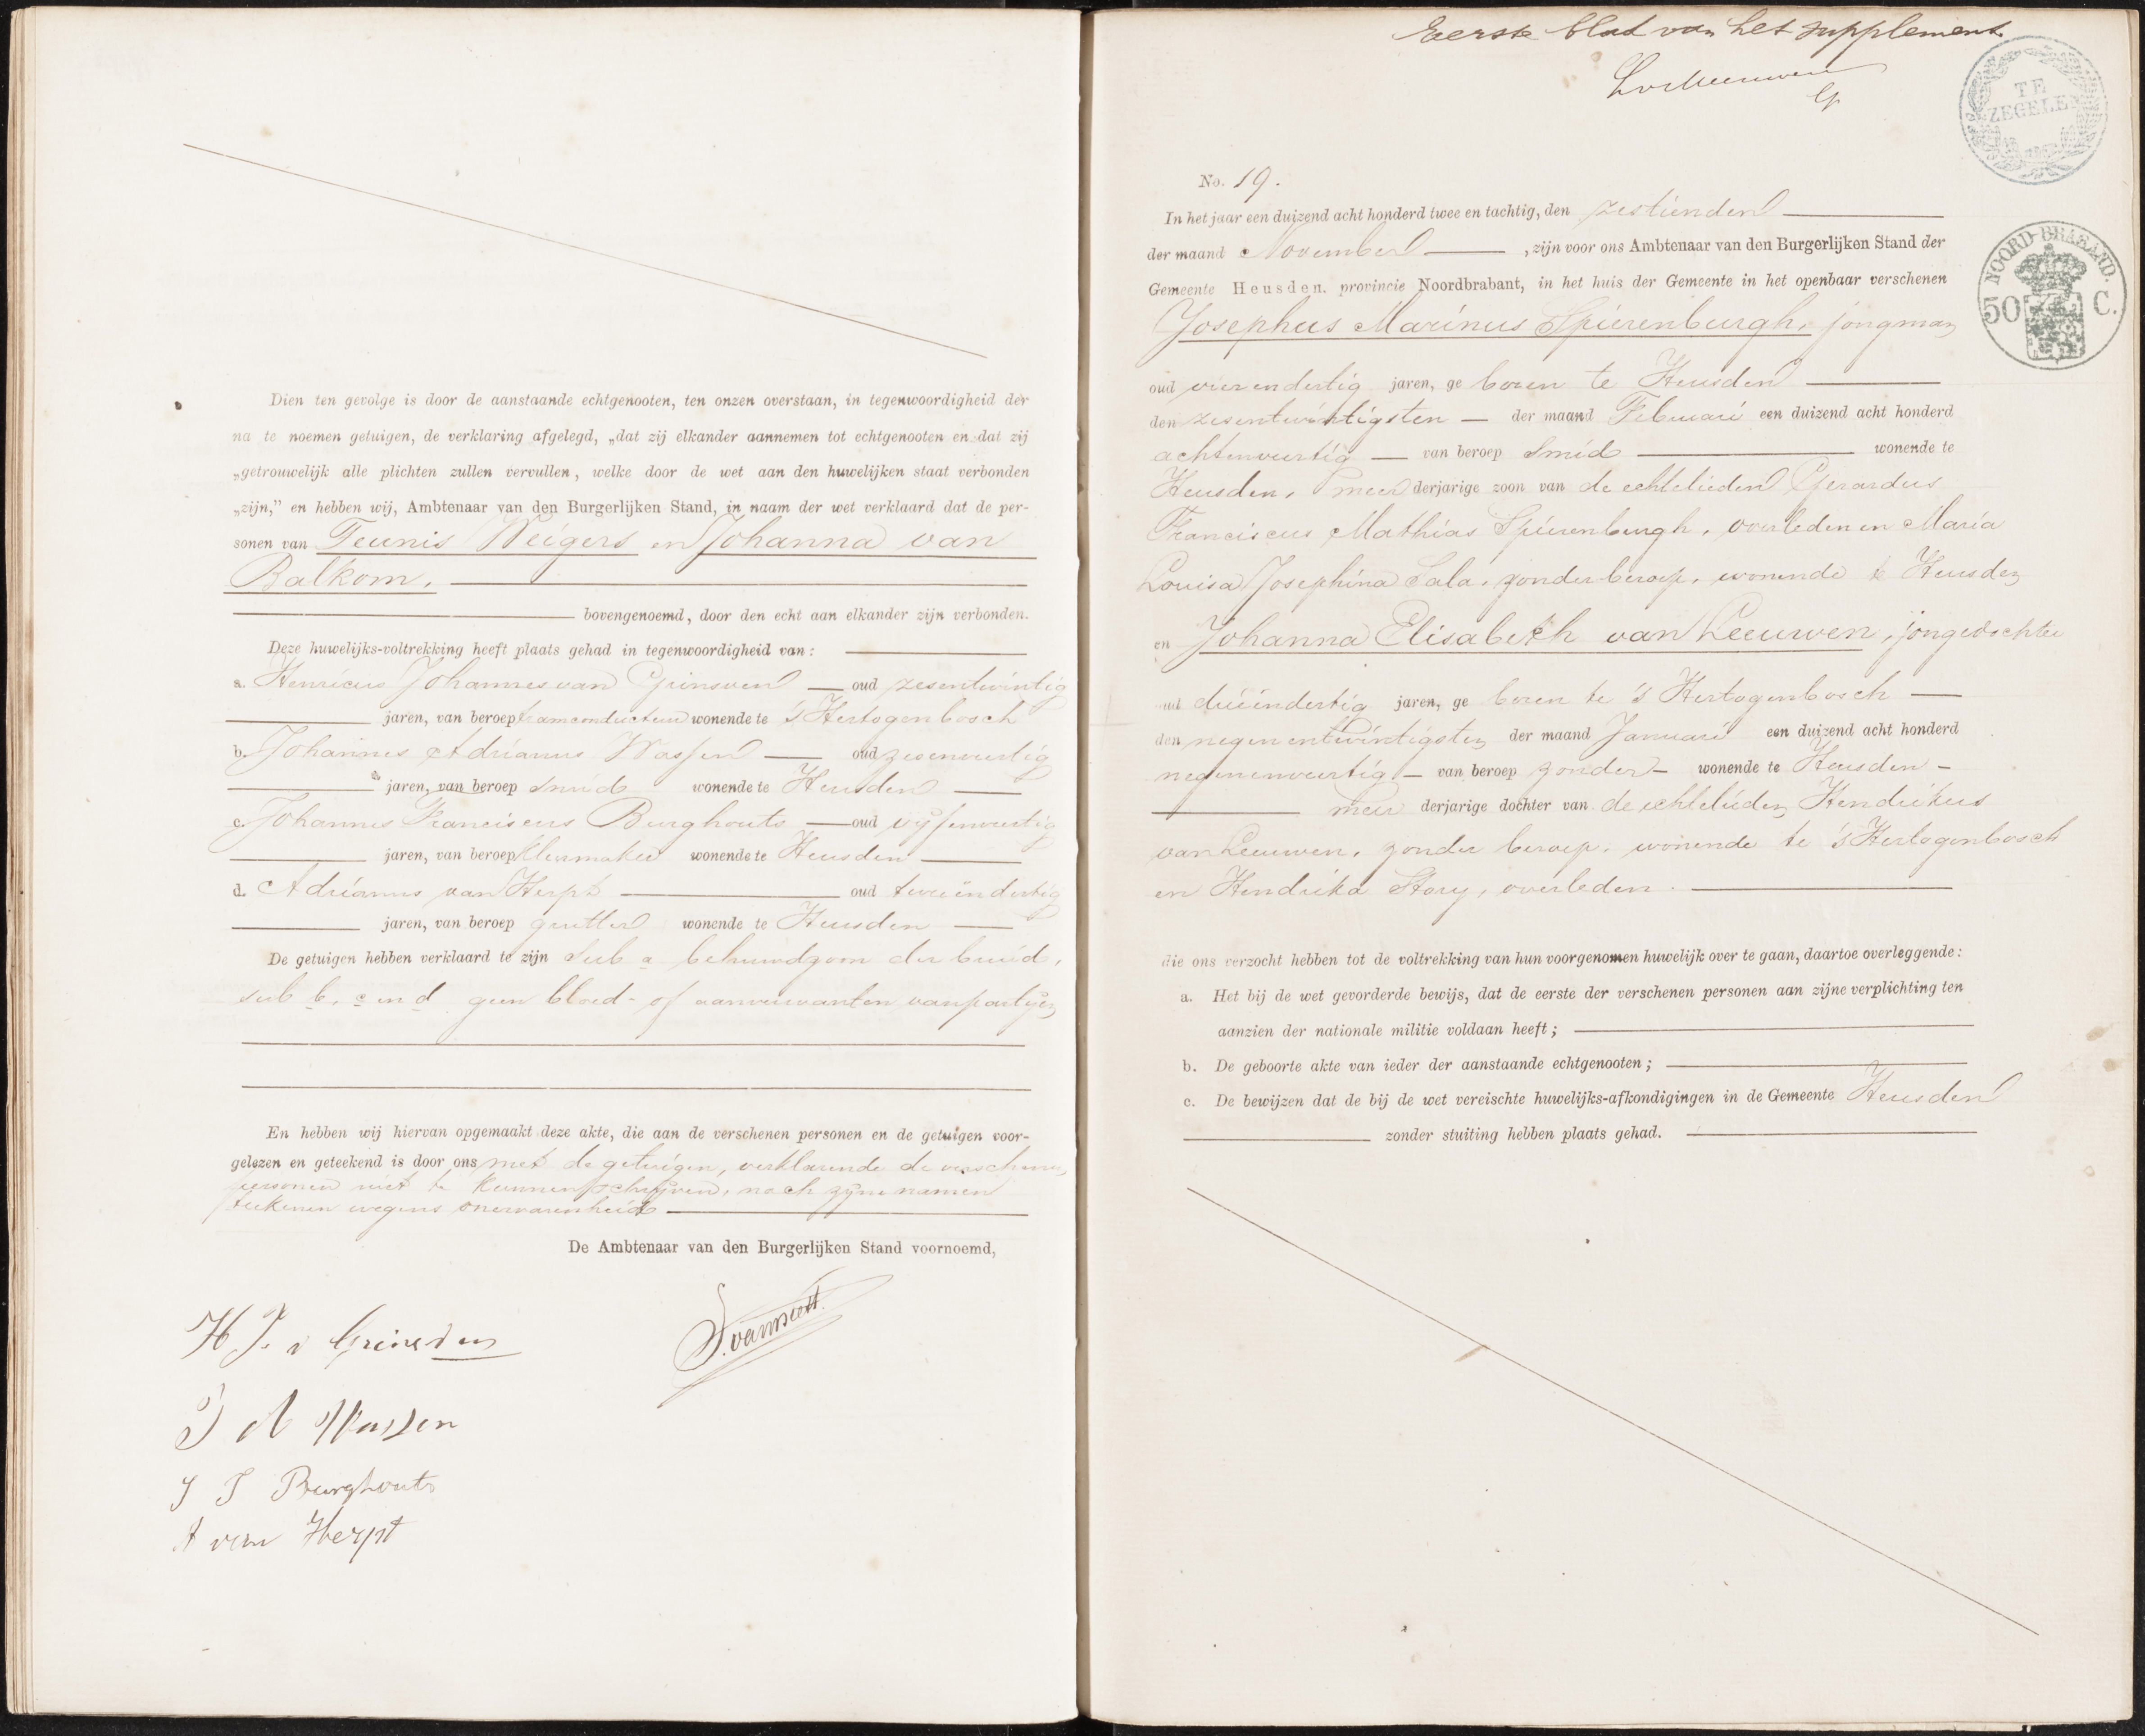 Dien ten gevolge is door de aanstaande echtgenooten, ten onzen overstaan, in tegenwoordigheid der
na te noemen getuigen, de verklaring afgelegd, „dat zij elkander aannemen tot echtgenooten en dat zij
„getrouwelijk alle plichten zullen vervullen, welke door de wet aan den huwelijken staat verbonden
„zijn,” en hebben wij, Ambtenaar van den Burgerlijken Stand, in naam der wet verklaard dat de per-
sonen van Teunis Weijgers en Johanna van
Balkom,
bovengenoemd, door den echt aan elkander zijn verbonden.
Deze huwelijks-voltrekking heeft plaats gehad in tegenwoordigheid van:
a. Henricus Johannes van Grinsven oud zesentwintig
jaren, van beroep tramconducteur wonende te 's Hertogenbosch
b. Johannes Adrianus Wassen oud zevenveertig
jaren, van beroep smid wonende te Heusden
c. Johannes Franciscus Burghouts oud vijfenveertig
jaren, van beroep kleermaker wonende te Heusden
d. Adrianus van Herpt oud tweeëndertig
jaren, van beroep wonende te Heusden
De getuigen hebben verklaard te zijn sub a behuwdzoon der bruid,
sub b, c en d geen bloed- of aanverwanten van partijen
En hebben wij hiervan opgemaakt deze akte, die aan de verschenen personen en de getuigen voor-
gelezen en geteekend is door ons met de getuigen, verklarende de verschenen
personen niet te kunnen schrijven, noch zijne namen
teekenen wegens onervarenheid
De Ambtenaar van den Burgerlijken Stand voornoemd,
H J. v Grinsven
J A Wassen
J F Burghouts
A van Herpt
Eerste blad van het supplement
No. 19.
TE
ZEGELEN
In het jaar een duizend acht honderd twee en tachtig, den zestienden
der maand November, zijn voor ons Ambtenaar van den Burgerlijken Stand der
Gemeente Heusden, provincie Noordbrabant, in het huis der Gemeente in het openbaar verschenen
NOORD-BRABAND.
50 C.
Josephus Marinus Spierenburgh, jongman
oud vierendertig jaren, geboren te Heusden
den zesentwintigsten der maand Februari een duizend acht honderd
achtenveertig van beroep smid wonende te
Heusden, meerderjarige zoon van de echtelieden Gerardus
Franciscus Mathias Spierenburgh, overleden en Maria
Louisa Josephina Sala, zonder beroep, wonende te Heusden
en Johanna Elisabeth van Leeuwen, jongedochter
oud drieëndertig jaren, geboren te 's Hertogenbosch
den negenentwintigsten der maand Januari een duizend acht honderd
negenenveertig van beroep zonder wonende te Heusden
meerderjarige dochter van de echtelieden Hendrikus
van Leeuwen, zonder beroep, wonende te 's Hertogenbosch
en Hendrika Story, overleden.
die ons verzocht hebben tot de voltrekking van hun voorgenomen huwelijk over te gaan, daartoe overleggende:
a. Het bij de wet gevorderde bewijs, dat de eerste der verschenen personen aan zijne verplichting ten
aanzien der nationale militie voldaan heeft;
b. De geboorte akte van ieder der aanstaande echtgenooten;
c. De bewijzen dat de bij de wet vereischte huwelijks-afkondigingen in de Gemeente Heusden
zonder stuiting hebben plaats gehad.